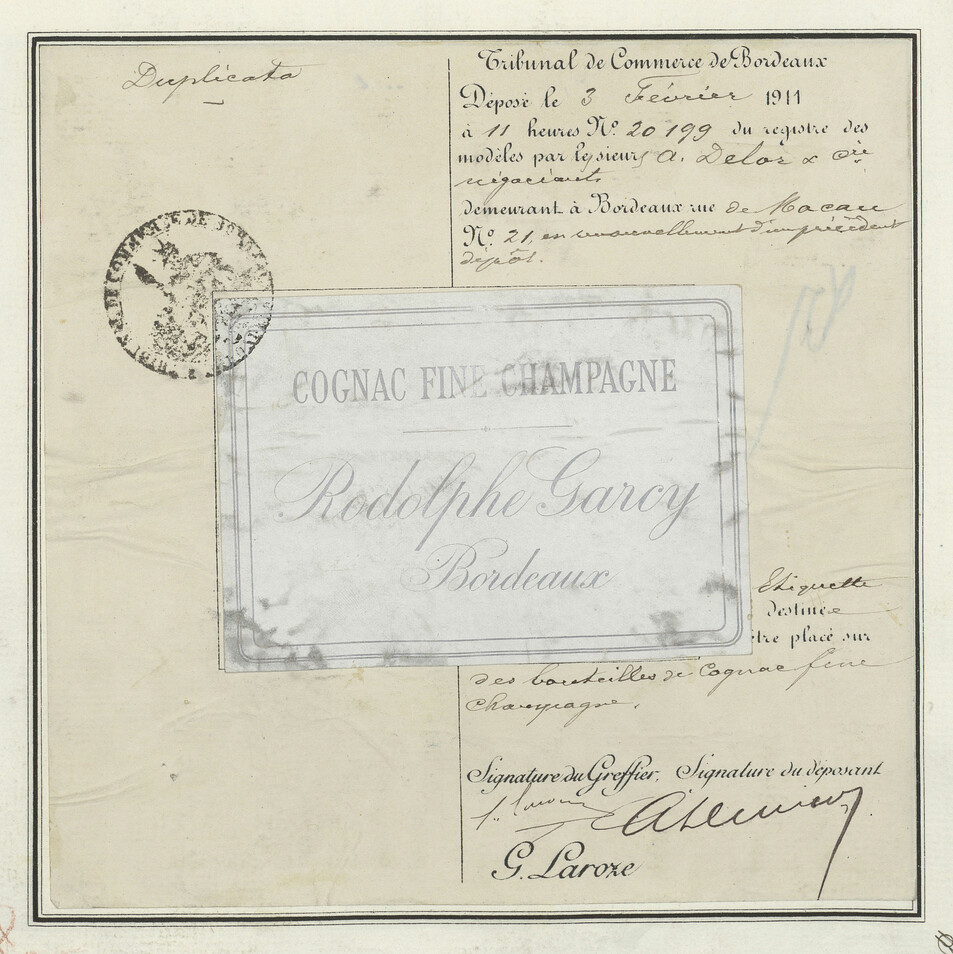 Duplicata
Tribunal de Commerce de Bordeaux
Déposé le 3 Février 1911
à 11 heures N° 20199 du registre des
modèles par les sieurs A. Delor & Cie
négociants
demeurant à Bordeaux rue de Macau
N° 21, en renouvellement d'un précédent
dépôt.
COGNAC FINE CHAMPAGNE
Rodolphe Garcy
Bordeaux
Etiquette
destinée
être placé sur
des bouteilles de Cognac fine
champagne.
Signature du Greffier, Signature du déposant
G. Laroze